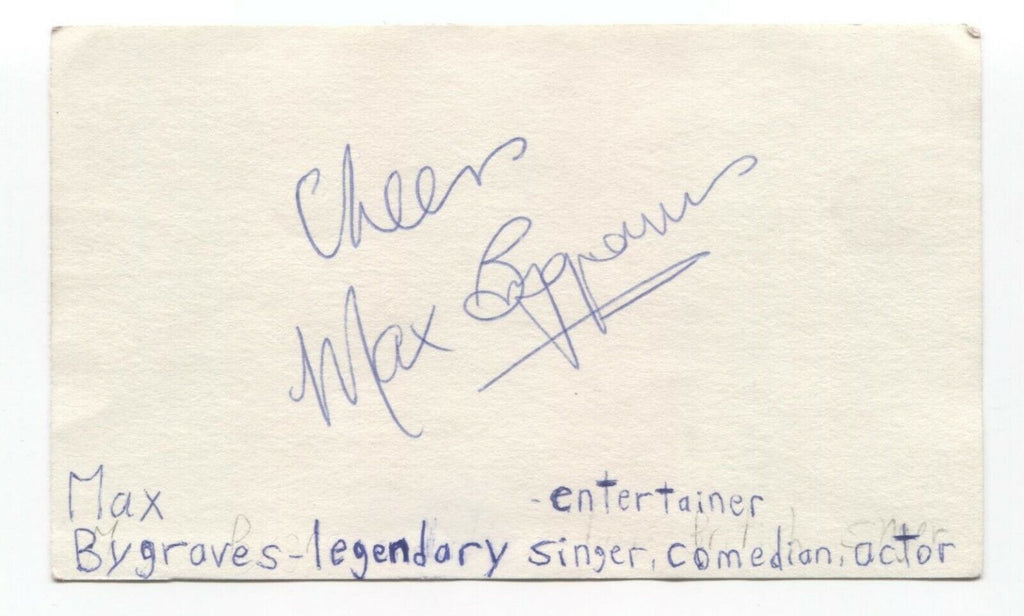 Cheers
Max Bygraves
Max -entertainer
Bygraves-legendary singer, comedian, actor